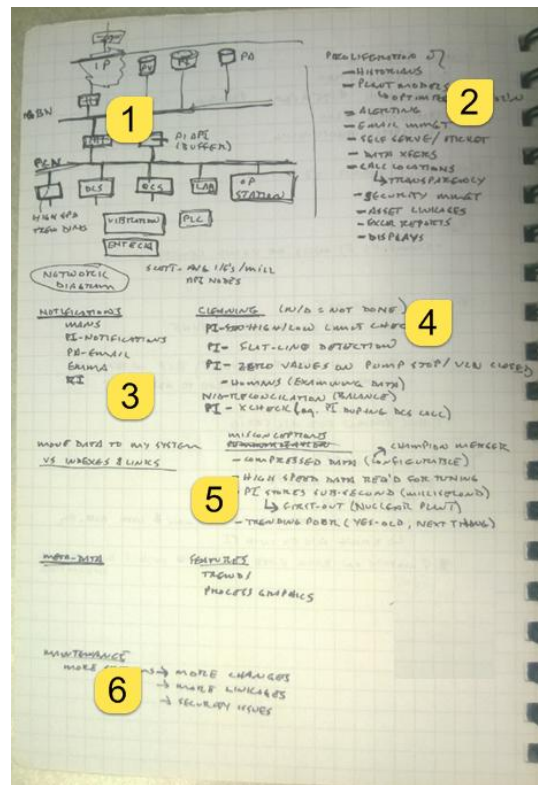 IP
PA
1
PI API
(BUFFER)
PCN
DCS
DCS
LAB
OP
STATION
HIGH SPD
VIBRATION
PLC
ENTECH
NETWORK
DIAGRAM
SCOTT - AVG 1/F'S/MILL
API NODES
PROLIFERATION OF
- HISTORIANS
- PLANT MODELS
2
- ALERTING
- EMAIL MNGT
- SELF SERVE/
- DATA XFERS
- CALC LOCATIONS
↳ TRANSPARENCY
- SECURITY MNGT
- ASSET LINKAGES
- EXCEL REPORTS
- DISPLAYS
NOTIFICATIONS
PI-NOTIFICATIONS
PA-EMAIL
3
CLEANING (N/D = NOT DONE)
4
PI- HIGH/LOW LIMIT CHECK
PI- FLAT-LINE DETECTION
PI- ZERO VALUES ON PUMP STOP/VLV CLOSED
- HUMANS (EXAMINING DATA)
N/D-RECONCILATION (BALANCE)
PI- XCHECK (eg. PI DURING DCS CALC)
MOVE DATA TO MY SYSTEM
VS INDEXES & LINKS
MISCONCEPTIONS
- COMPRESSED DATA (CONFIGURABLE)
CHAMPION
- HIGH SPEED DATA REQ'D FOR TUNING
5
- PI STORES SUB-SECOND (MILLISECOND)
↳ FIRST-OUT (NUCLEAR PLANT)
- TRENDING POOR (YES-OLD, NEXT THING)
META-DATA
FEATURES
TRENDS
PROCESS GRAPHICS
MAINTENANCE
MORE → MORE CHANGES
6
→ MORE LINKAGES
→ SECURITY ISSUES